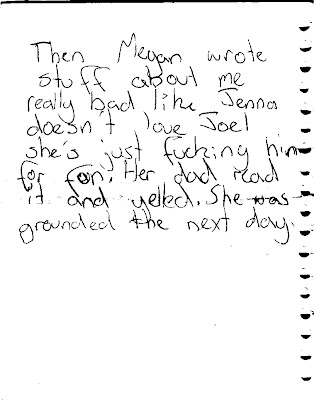 Then Megan wrote
stuff about me
really bad like Jenna
doesn't love Joel
she's just fucking him
for fun. Her dad read
it and yelled. She was
grounded the next day.